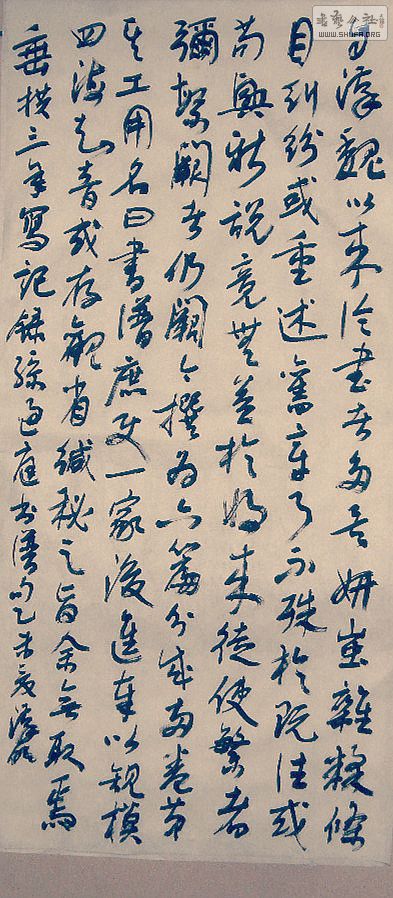 自漢魏以来論書者多矣妍蚩雜糅條
目糾紛或重述舊章了不殊於既往或
苟興新説竟無益於將来徒使繁者
彌繁闕者仍闕今撰為六篇分成兩卷第
其工用名曰書譜庶使一家後進奉以規模
四海知音或存觀省緘秘之旨余無取焉
垂拱三年寫記錄孫過庭書譜句乙未夏
书艺公社
WWW.SHUFA.ORG